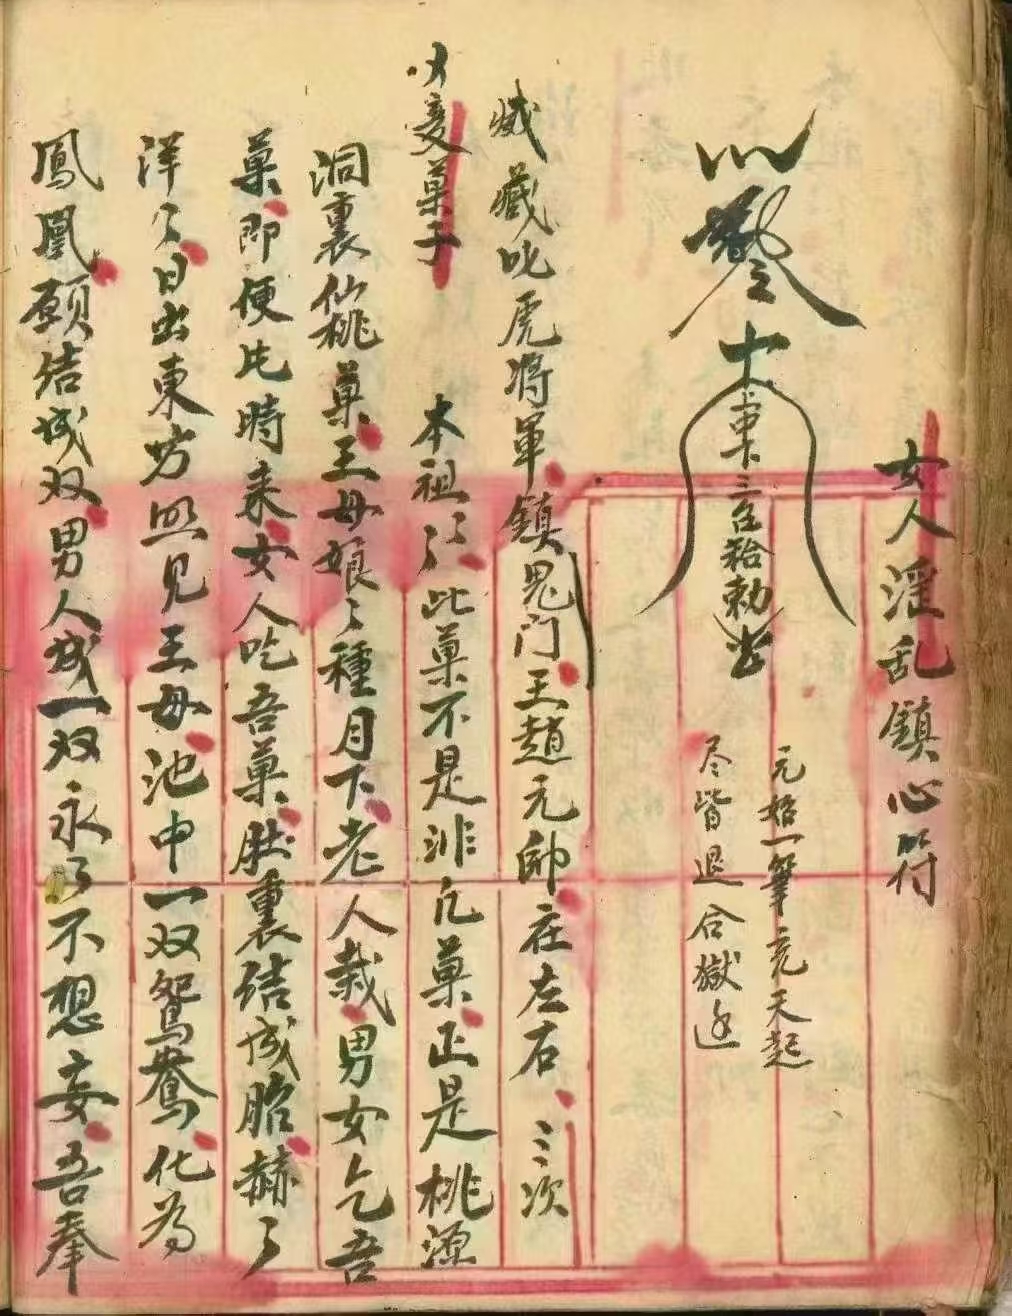 女人淫乱鎮心符
元始一筆克天起
尽皆退合獄迯
三台勅
藏藏叱虎将軍鎮鬼门王趙元帥在左右三次
变菓子
本祖々此菓不是非凢菓正是桃源
洞裏仙桃菓王母娘々種月下老人栽男女乞吾
菓即便比時来女人吃吾菓肚裏结成胎赫々
洋々日出東方照见王母池中一双鴛鴦化为
鳳凰願结成双男人成一双永了不想妄吾奉